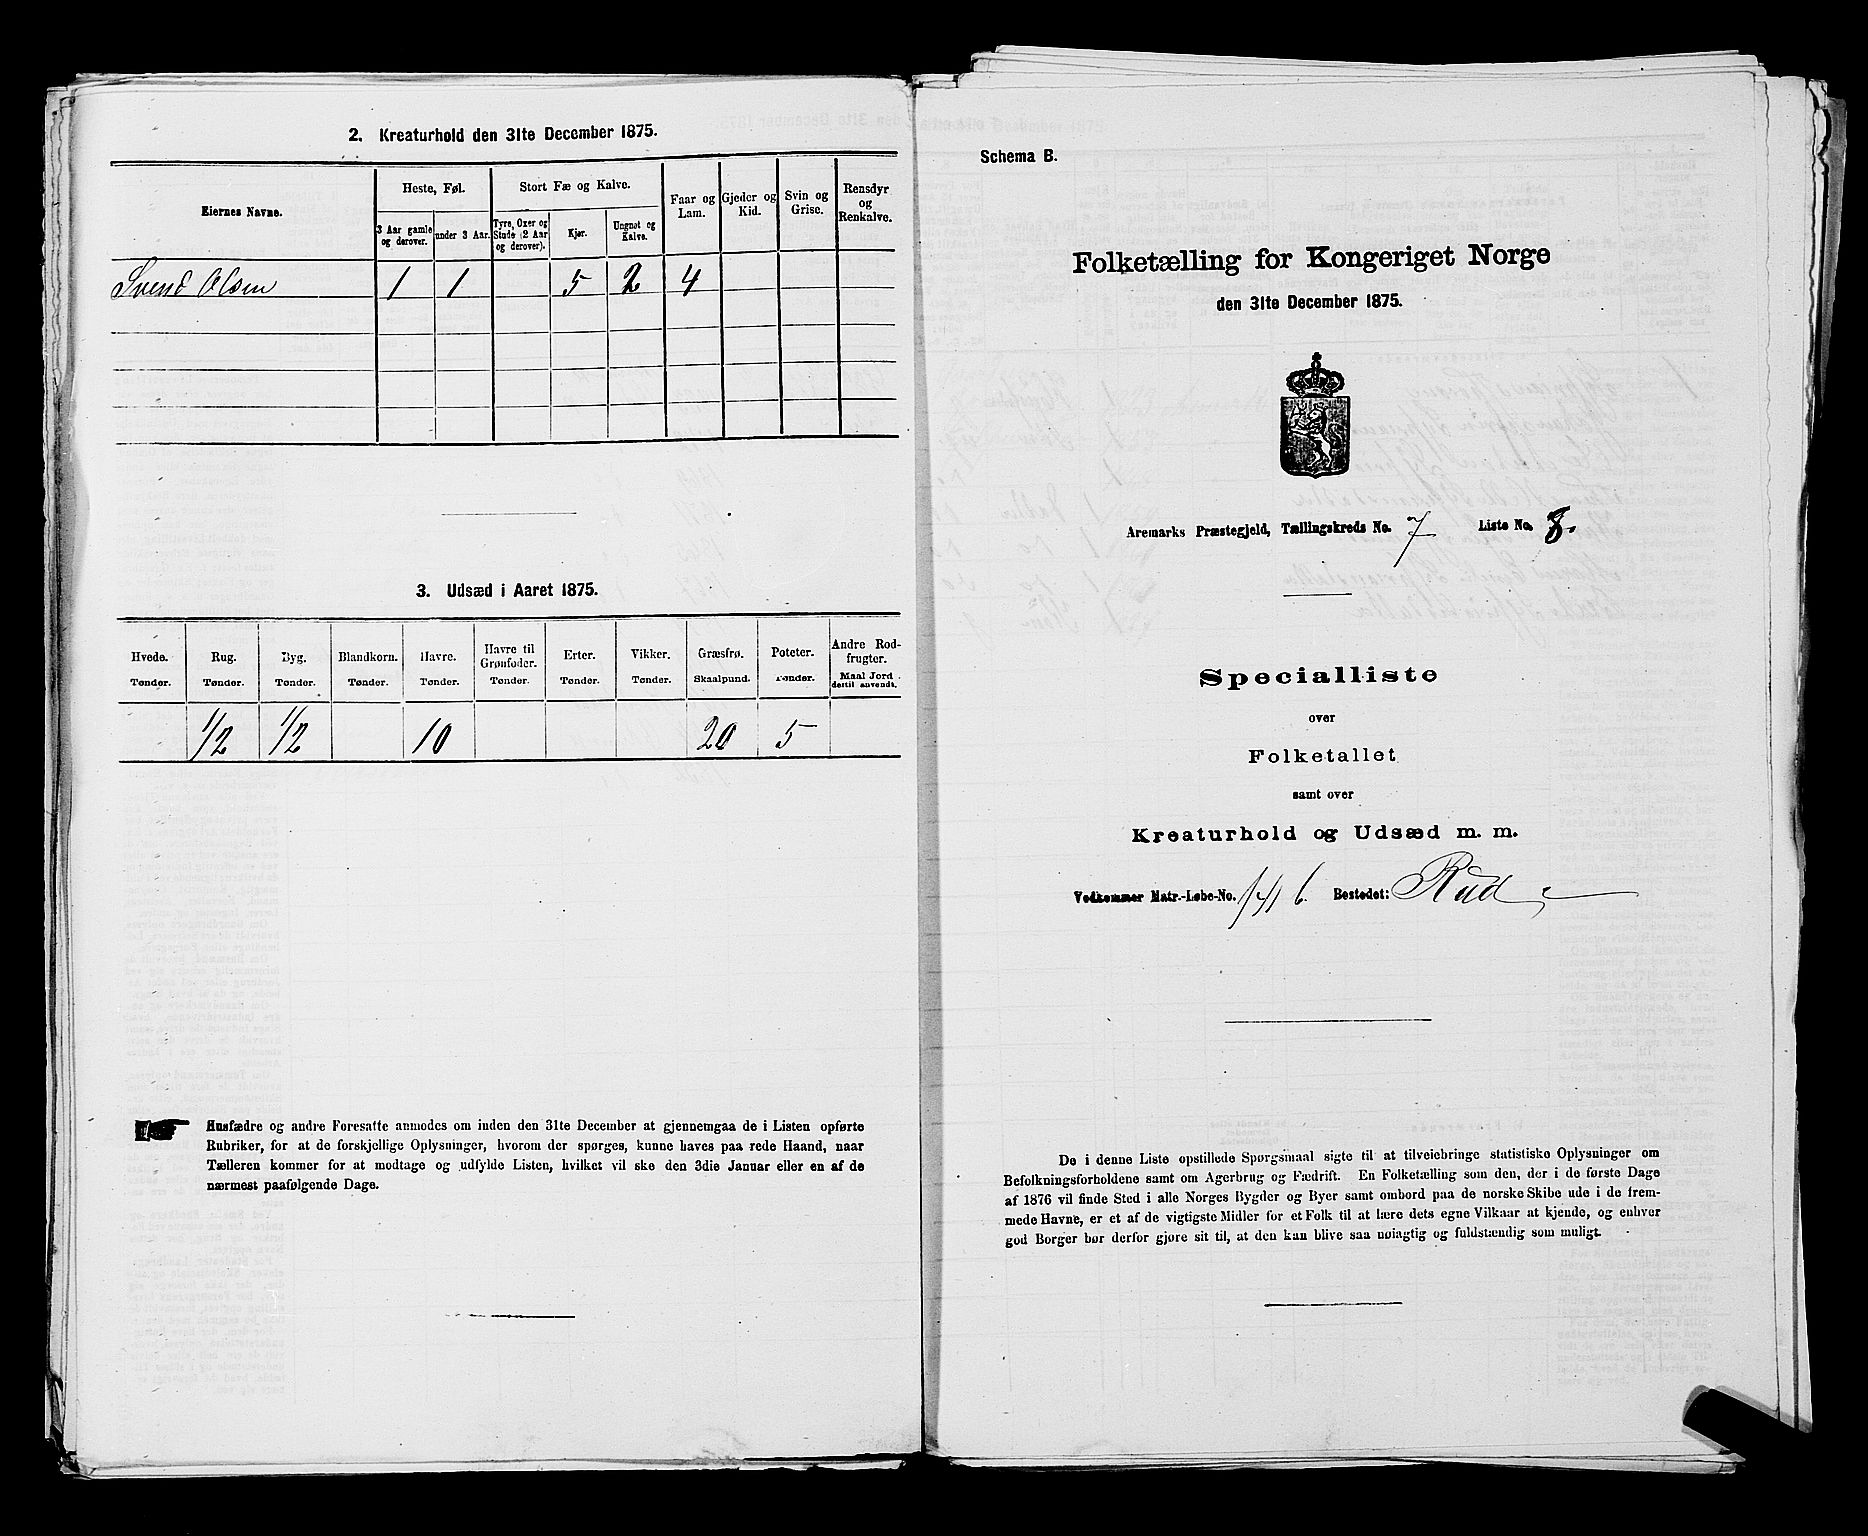 2. Kreaturhold den 31te December 1875.
Eiernes Navne.
Heste, Føl.
Stort Fæ og Kalve.
Faar og Lam.
Gjeder og Kid.
Svin og Grise.
Rensdyr og Renkalve.
3 Aar gamle og derover.
under 3 Aar.
Tyre, Oxer og Stude (2 Aar og derover).
Kjør.
Ungnøt og Kalve.
Svend Olsen 1 1 5 2 4
3. Udsæd i Aaret 1875.
Hvede. Rug. Byg. Blandkorn. Havre. Havre til Grønfoder. Erter. Vikker. Græsfrø. Poteter. Andre Rodfrugter.
Tønder. Tønder. Tønder. Tønder. Tønder. Tønder. Tønder. Tønder. Skaalpund. Tønder. Maal Jord dertil anvendt.
1/2 1/2 10 20 5
Husfædre og andre Foresatte anmodes om inden den 31te December at gjennemgaa de i Listen opførte
Rubriker, for at de forskjellige Oplysninger, hvorom der spørges, kunne haves paa rede Haand, naar
Tælleren kommer for at modtage og udfylde Listen, hvilket vil ske den 3die Januar eller en af de
nærmest paafølgende Dage.
Schema B.
Folketælling for Kongeriget Norge
den 31te December 1875.
Aremarks Præstegjeld, Tællingskreds No. 7 Liste No. 8.
Specialliste
over
Folketallet
samt over
Kreaturhold og Udsæd m. m.
Vedkommer Matr.-Løbe-No. 141 b. Bestedet: Rud
De i denne Liste opstillede Spørgsmaal sigte til at tilveiebringe statistiske Oplysninger om
Befolkningsforholdene samt om Agerbrug og Fædrift. En Folketælling som den, der i de første Dage
af 1876 vil finde Sted i alle Norges Bygder og Byer samt ombord paa de norske Skibe ude i de frem-
mede Havne, er et af de vigtigste Midler for et Folk til at lære dets egne Vilkaar at kjende, og enhver
god Borger bør derfor gjøre sit til, at den kan blive saa nøiagtig og fuldstændig som muligt.